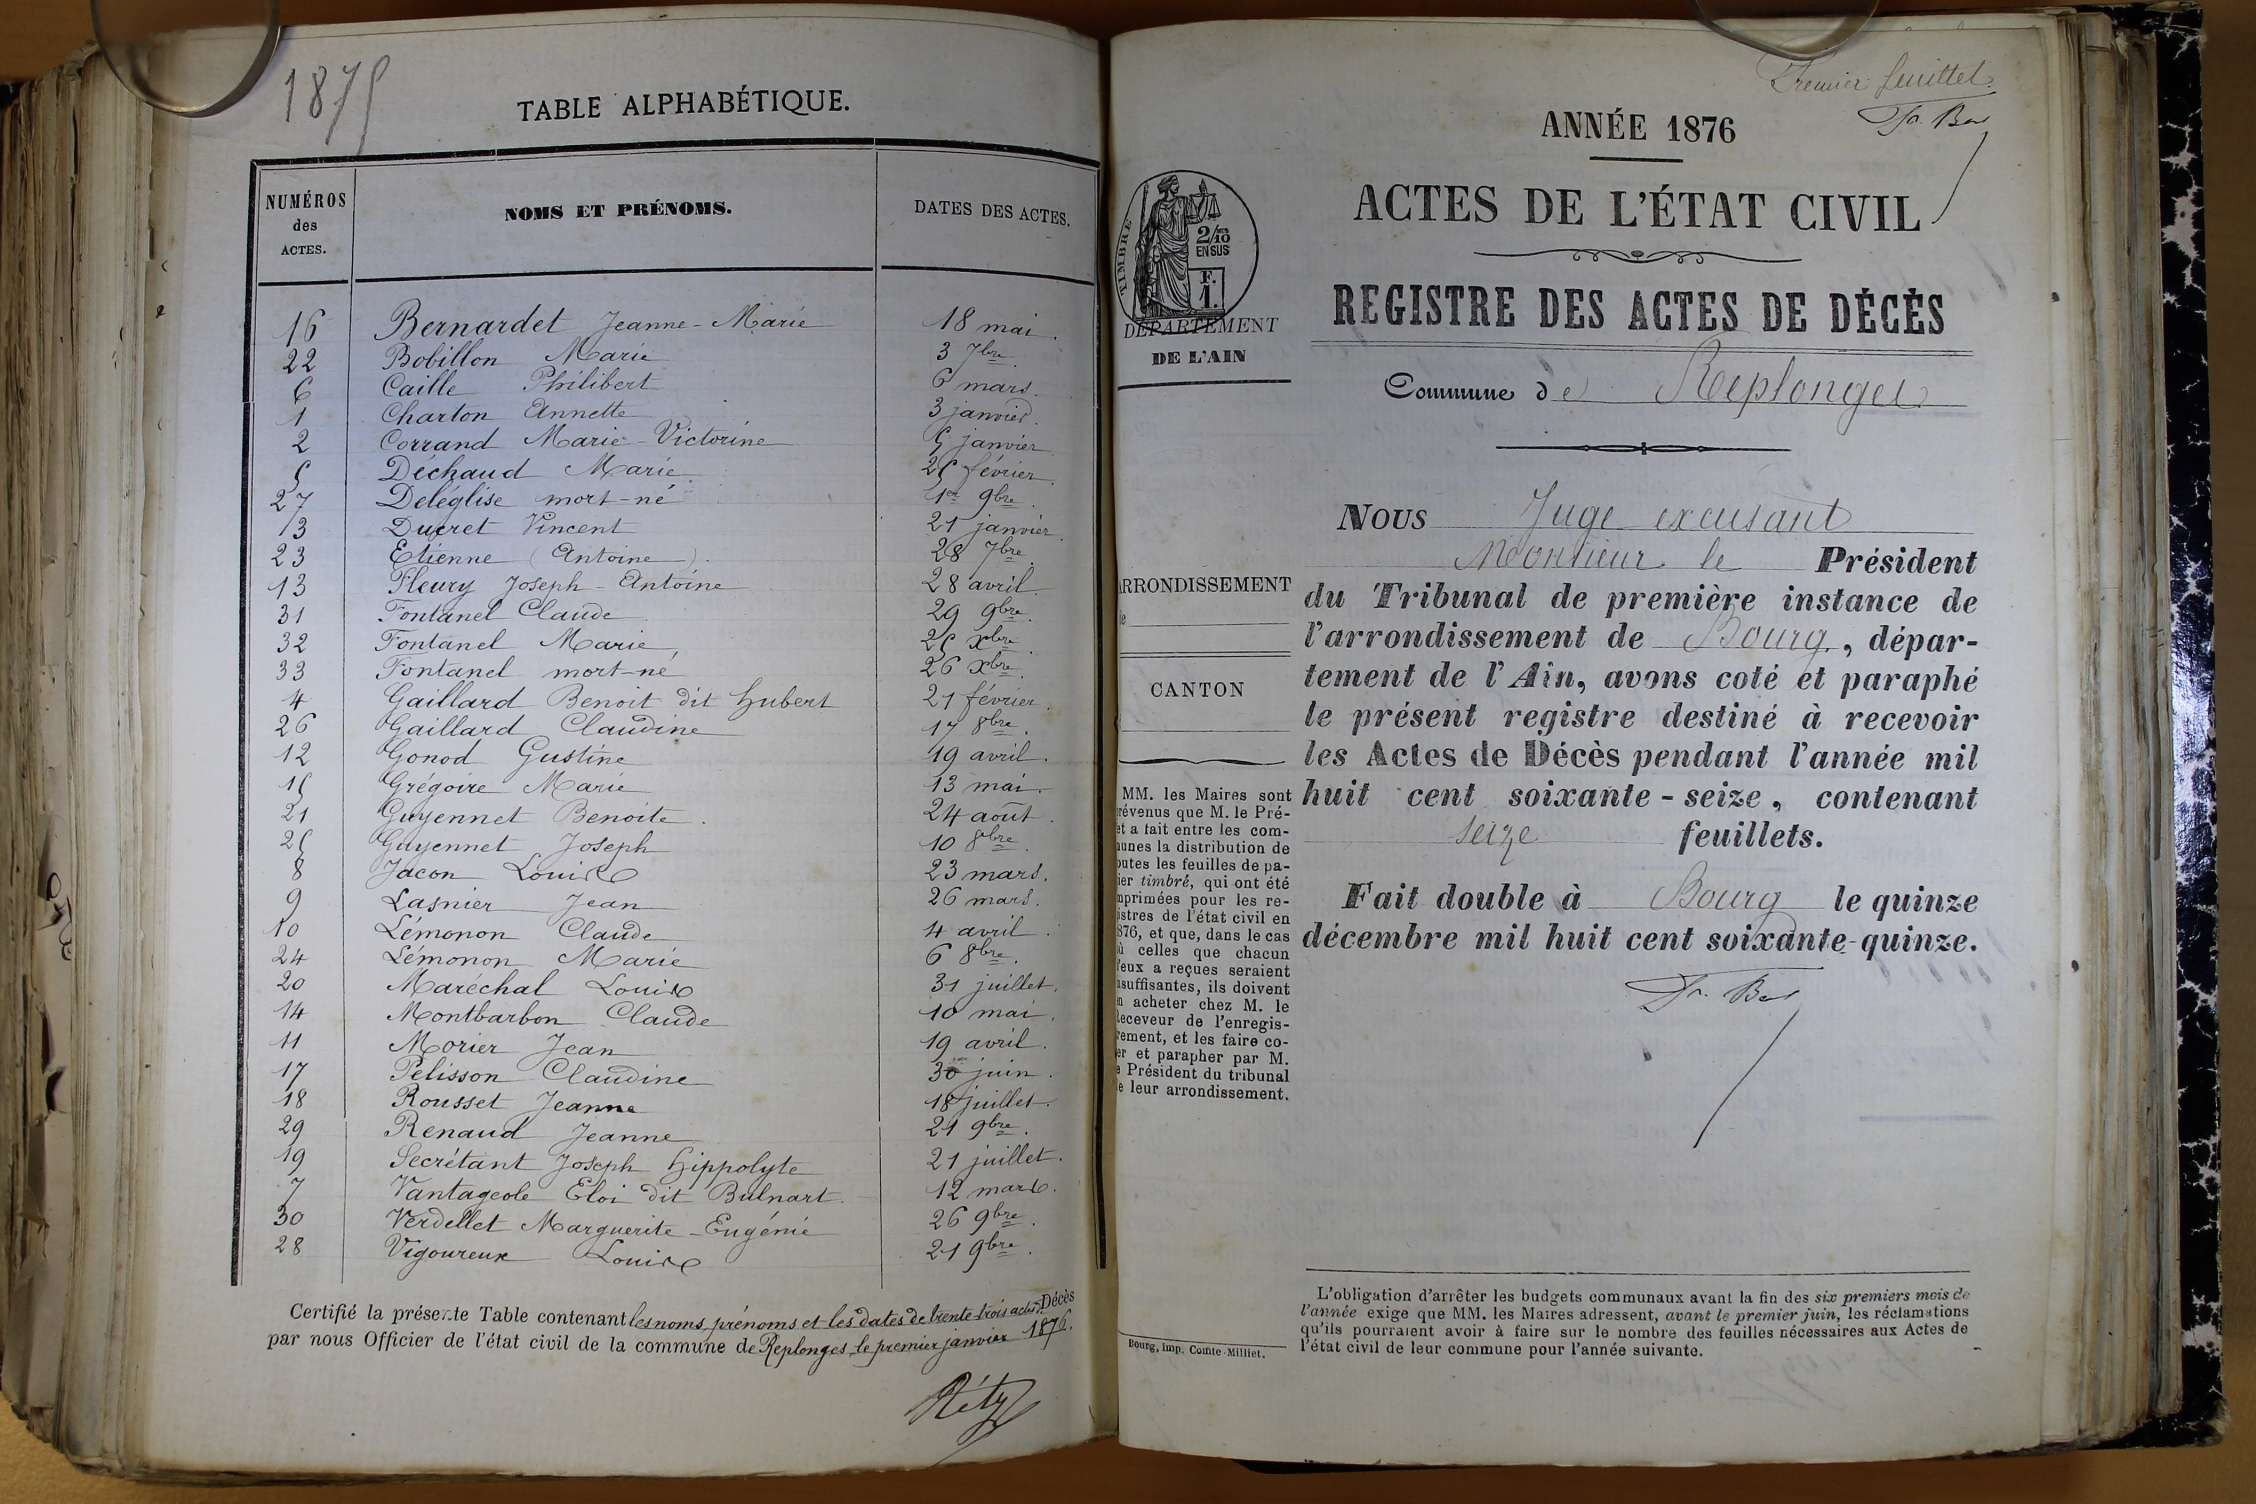 1875
TABLE ALPHABÉTIQUE.
NUMÉROS des ACTES. NOMS ET PRÉNOMS. DATES DES ACTES.
16 Bernardet Jeanne-Marie 18 mai.
22 Bobillon Marie 3 7bre.
6 Caille Philibert 6 mars.
1 Charton Annette 3 janvier.
2 Corrand Marie-Victorine 5 janvier
5 Dechaud Marie 25 février.
27 Deléglise mort-né 1er 9bre.
13 Ducret Vincent 21 janvier.
23 Etienne (Antoine). 28 7bre.
13 Fleury Joseph-Antoine 28 avril.
31 Fontanel Claude 29 9bre.
32 Fontanel Marie, 25 Xbre.
33 Fontanel mort-né 26 Xbre.
4 Gaillard Benoit dit Hubert 21 février.
26 Gaillard Claudine 17 8bre.
12 Gonod Gustine 19 avril.
15 Grégoire Marie 13 mai.
21 Guyennet Benoite. 24 août.
25 Guyennet Joseph 10 8bre.
8 Jacon Louise 23 mars.
9 Lasnier Jean 26 mars.
10 Lémonon Claude 4 avril.
24 Lémonon Marie 6 8bre.
20 Maréchal Louise 31 juillet.
14 Montbarbon Claude 10 mai.
11 Morier Jean 19 avril.
17 Pelisson Claudine 30 juin.
18 Rousset Jeanne 18 juillet.
29 Renaud Jeanne 21 9bre.
19 Secrétant Joseph Hippolyte 21 juillet.
7 Vantageole Eloi dit Bulnart. 12 mars.
30 Verdellet Marguerite-Eugénie 26 9bre.
28 Vigoureux Louise 21 9bre.
Certifié la présente Table contenant les noms, prénoms et les dates de trente trois actes de Décès
par nous Officier de l'état civil de la commune de Replonges le premier janvier 1876.
Réty
Premier feuillet.
ANNÉE 1876
ACTES DE L'ÉTAT CIVIL
REGISTRE DES ACTES DE DÉCÈS
Commune de Replonges
TIMBRE
2/10 EN SUS
F. 1.
DÉPARTEMENT
DE L'AIN
ARRONDISSEMENT
CANTON
MM. les Maires sont
révenus que M. le Pré-
et a fait entre les com-
unes la distribution de
outes les feuilles de pa-
ier timbré, qui ont été
mprimées pour les re-
istres de l'état civil en
876, et que, dans le cas
ù celles que chacun
'eux a reçues seraient
nsuffisantes, ils doivent
n acheter chez M. le
Receveur de l'enregis-
rement, et les faire co-
er et parapher par M.
e Président du tribunal
e leur arrondissement.
Bourg, imp. Comte-Milliet.
NOUS Juge excusant
Monsieur le Président
du Tribunal de première instance de
l'arrondissement de Bourg, dépar-
tement de l'Ain, avons coté et paraphé
le présent registre destiné à recevoir
les Actes de Décès pendant l'année mil
huit cent soixante-seize, contenant
seize feuillets.
Fait double à Bourg le quinze
décembre mil huit cent soixante-quinze.
L'obligation d'arrêter les budgets communaux avant la fin des six premiers mois de
l'année exige que MM. les Maires adressent, avant le premier juin, les réclamations
qu'ils pourraient avoir à faire sur le nombre des feuilles nécessaires aux Actes de
l'état civil de leur commune pour l'année suivante.